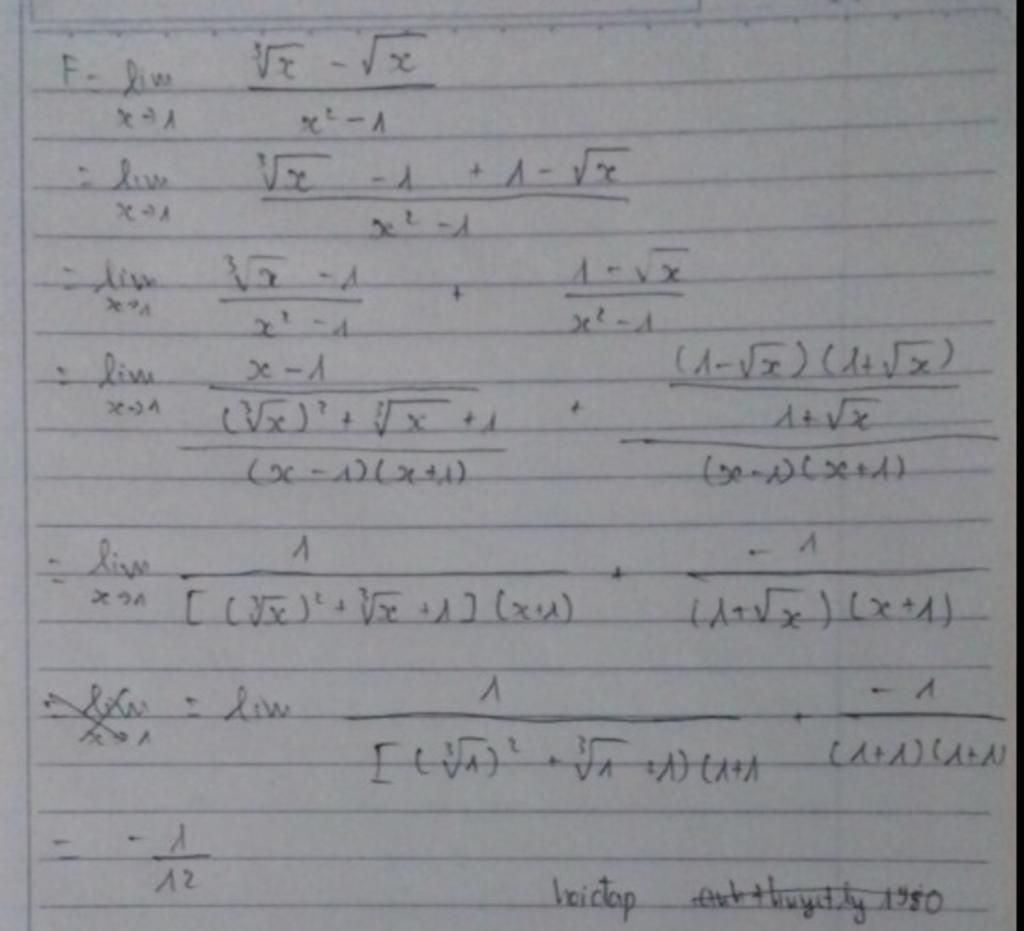 F = lim x→1 (∛x - √x)/(x² - 1)
= lim x→1 (∛x - 1 + 1 - √x)/(x² - 1)
= lim x→1 (∛x - 1)/(x² - 1) + (1 - √x)/(x² - 1)
= lim x→1 ((x - 1)/((∛x)² + ∛x + 1))/((x - 1)(x + 1)) + (((1 - √x)(1 + √x))/(1 + √x))/((x - 1)(x + 1))
= lim x→1 1/([(∛x)² + ∛x + 1](x + 1)) + (-1)/((1 + √x)(x + 1))
= lim 1/([(∛1)² + ∛1 + 1)(1 + 1) + (-1)/((1 + 1)(1 + 1)
= -1/12
hoictap 1980